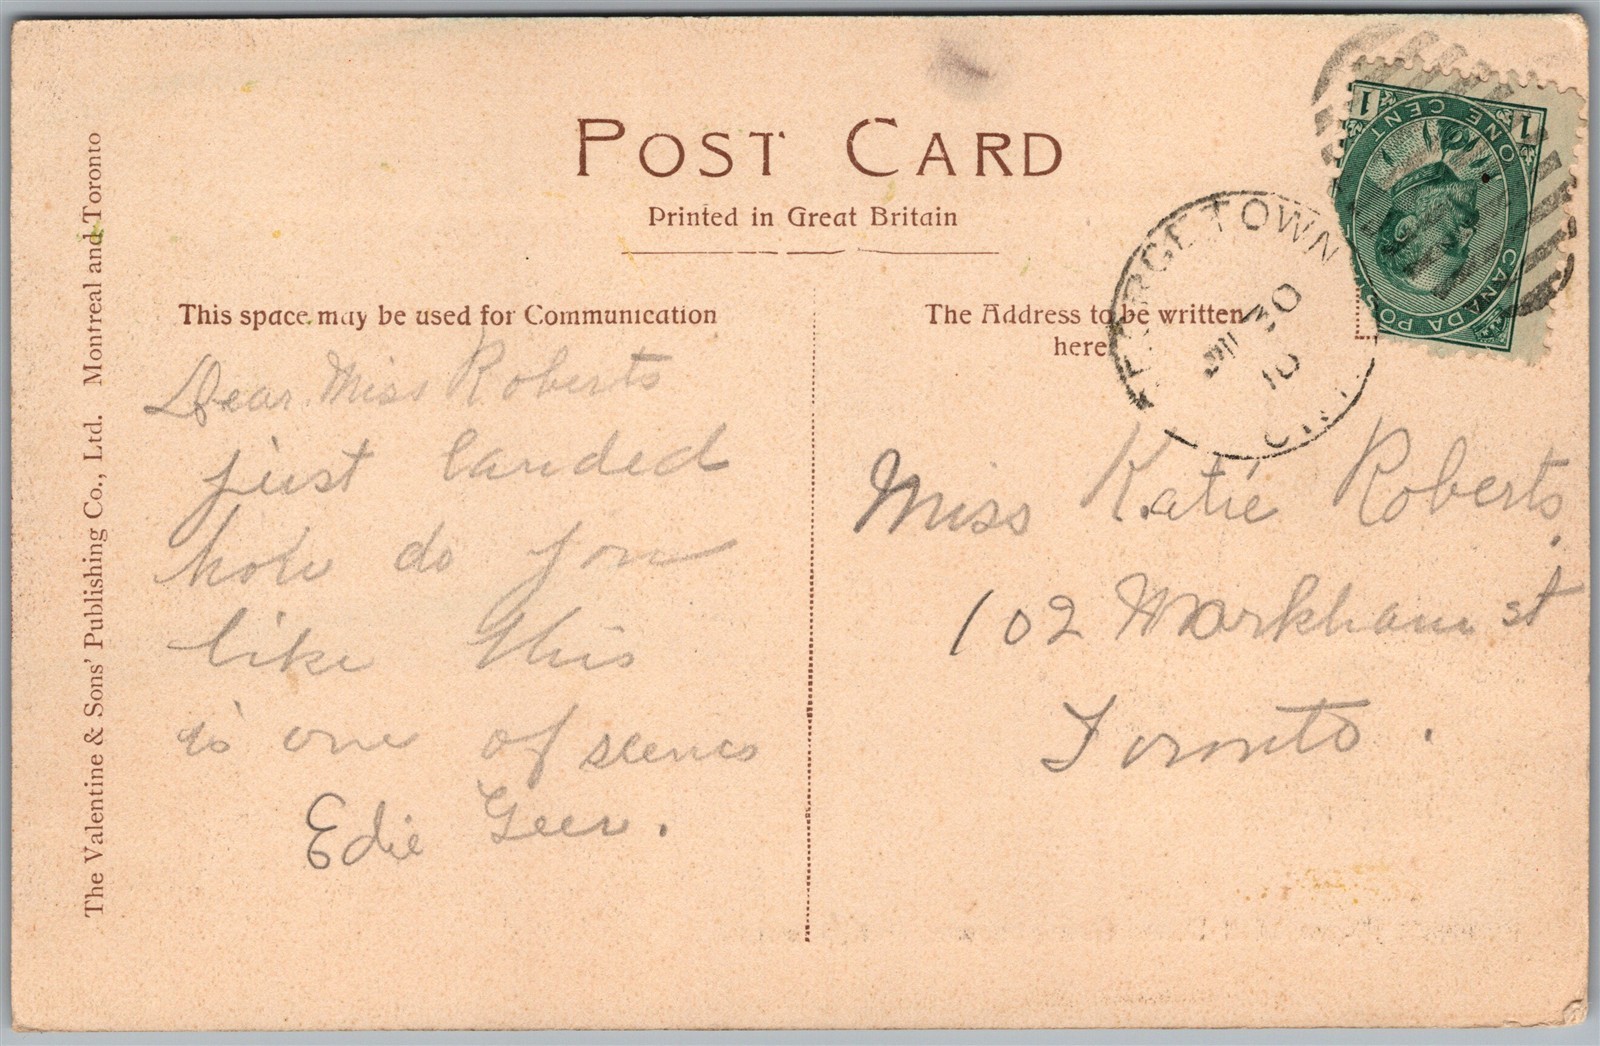 POST CARD
Printed in Great Britain
This space may be used for Communication
The Address to be written
here
Dear Miss Roberts
just landed
how do you
like this
is one of scenes
Edie Geer.
Miss Katie Roberts.
102 Markham st
Toronto.
The Valentine & Sons' Publishing Co., Ltd. Montreal and Toronto
GEORGETOWN
30
10
ONT
CANADA POST
ONE CENT
1
1